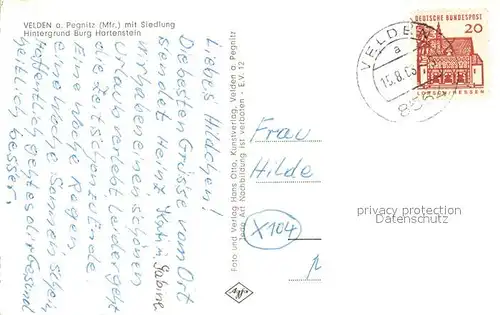 VELDEN a. Pegnitz (Mfr.) mit Siedlung
Hintergrund Burg Hartenstein
Liebes Hildchen!
Die besten Grüsse vom Ort
sendet Heinz, Karin, Sabine
wir haben einen schönen
Urlaub verlebt, Leider geht
die Zeit schon zu Ende.
Eine Woche Regen,
eine Woche Sonnenschein
Hoffentlich geht es dir Gesund
heitlich besser.
Foto und Verlag Hans Otto, Kunstverlag, Velden a. Pegnitz
Jede Art Nachbildung ist verboten - E.V. 12
Agfa
DEUTSCHE BUNDESPOST
20
LORSCH/HESSEN
VELDEN
a
15.8.
Frau
Hilde
X104
privacy protection
Datenschutz